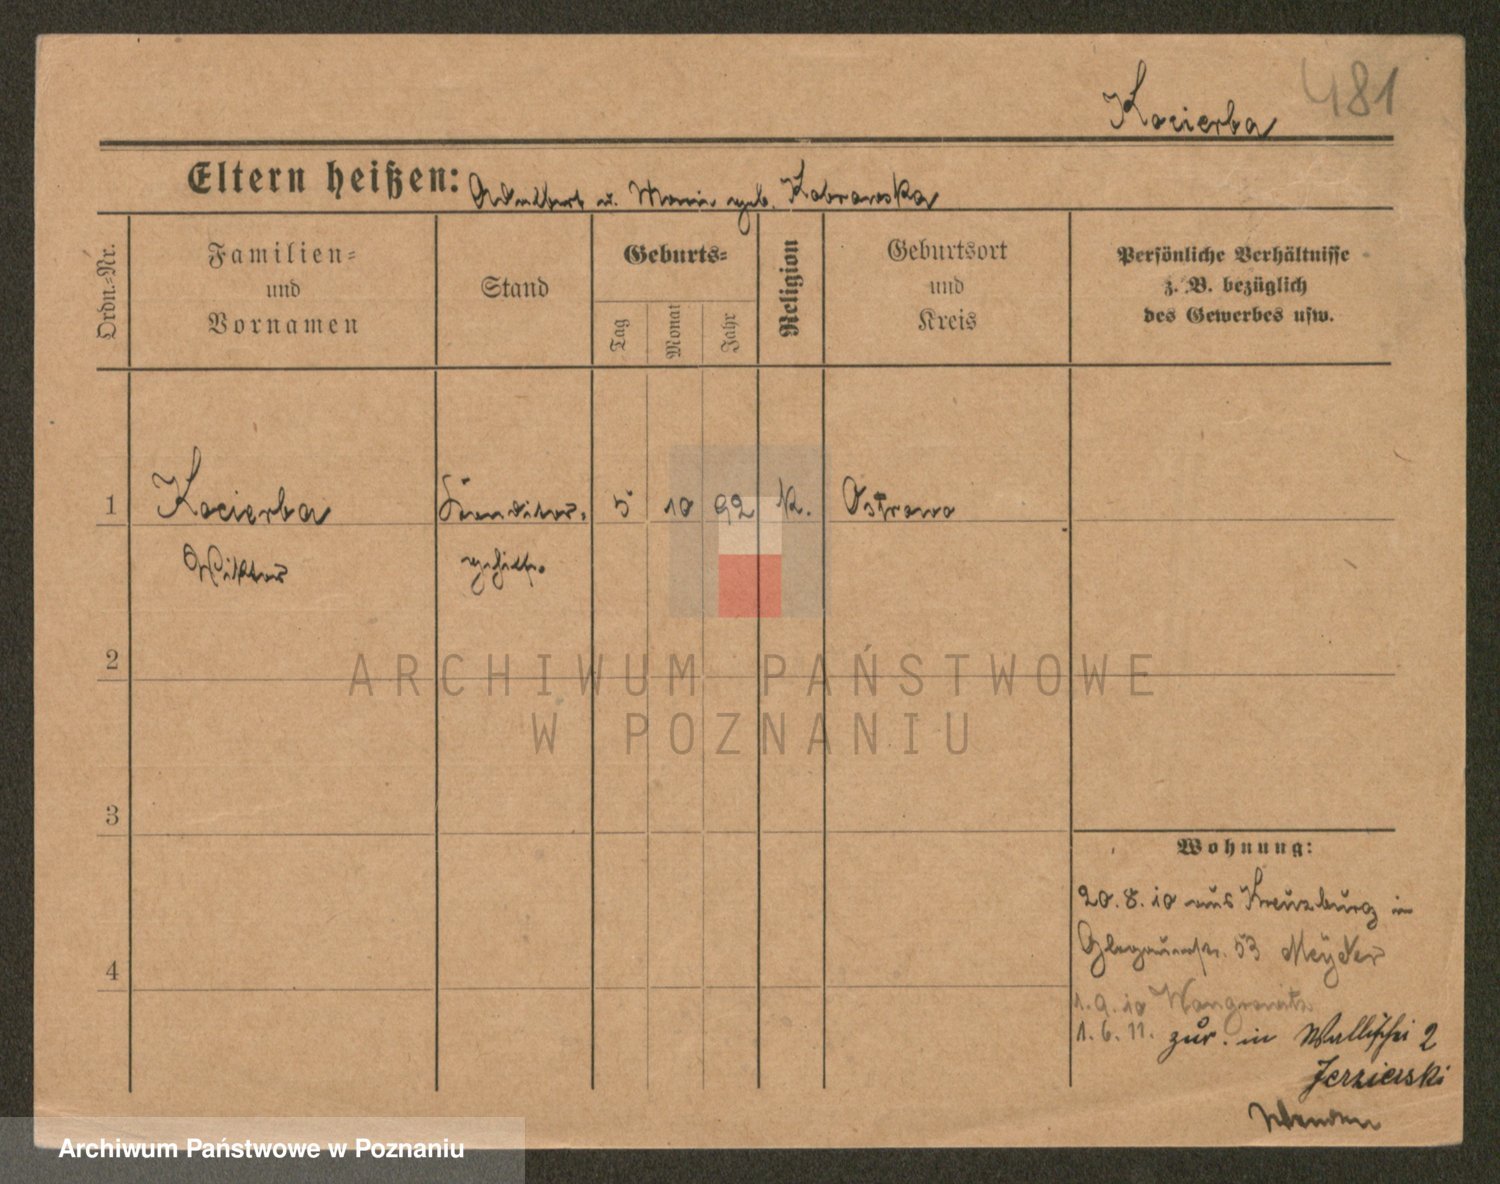 Kocierba 481
Eltern heißen: Adalbert u. Maria geb. Zabrowska
Ordn.-Nr.
Familien-
und
Vornamen
Stand
Geburts-
Tag
Monat
Jahr
Religion
Geburtsort
und
Kreis
Persönliche Verhältnisse
z. B. bezüglich
des Gewerbes usw.
1 Kocierba 5 10 92 k. Ostrowo
Wiktor
2
3
4
Wohnung:
20.8.10 aus Kreuzburg in
Glogauerstr. 53 Meyder
1.9.10 Wongrowitz
1.6.11. zur. in Wallischei 2
Jerzierski
ARCHIWUM PAŃSTWOWE
W POZNANIU
Archiwum Państwowe w Poznaniu